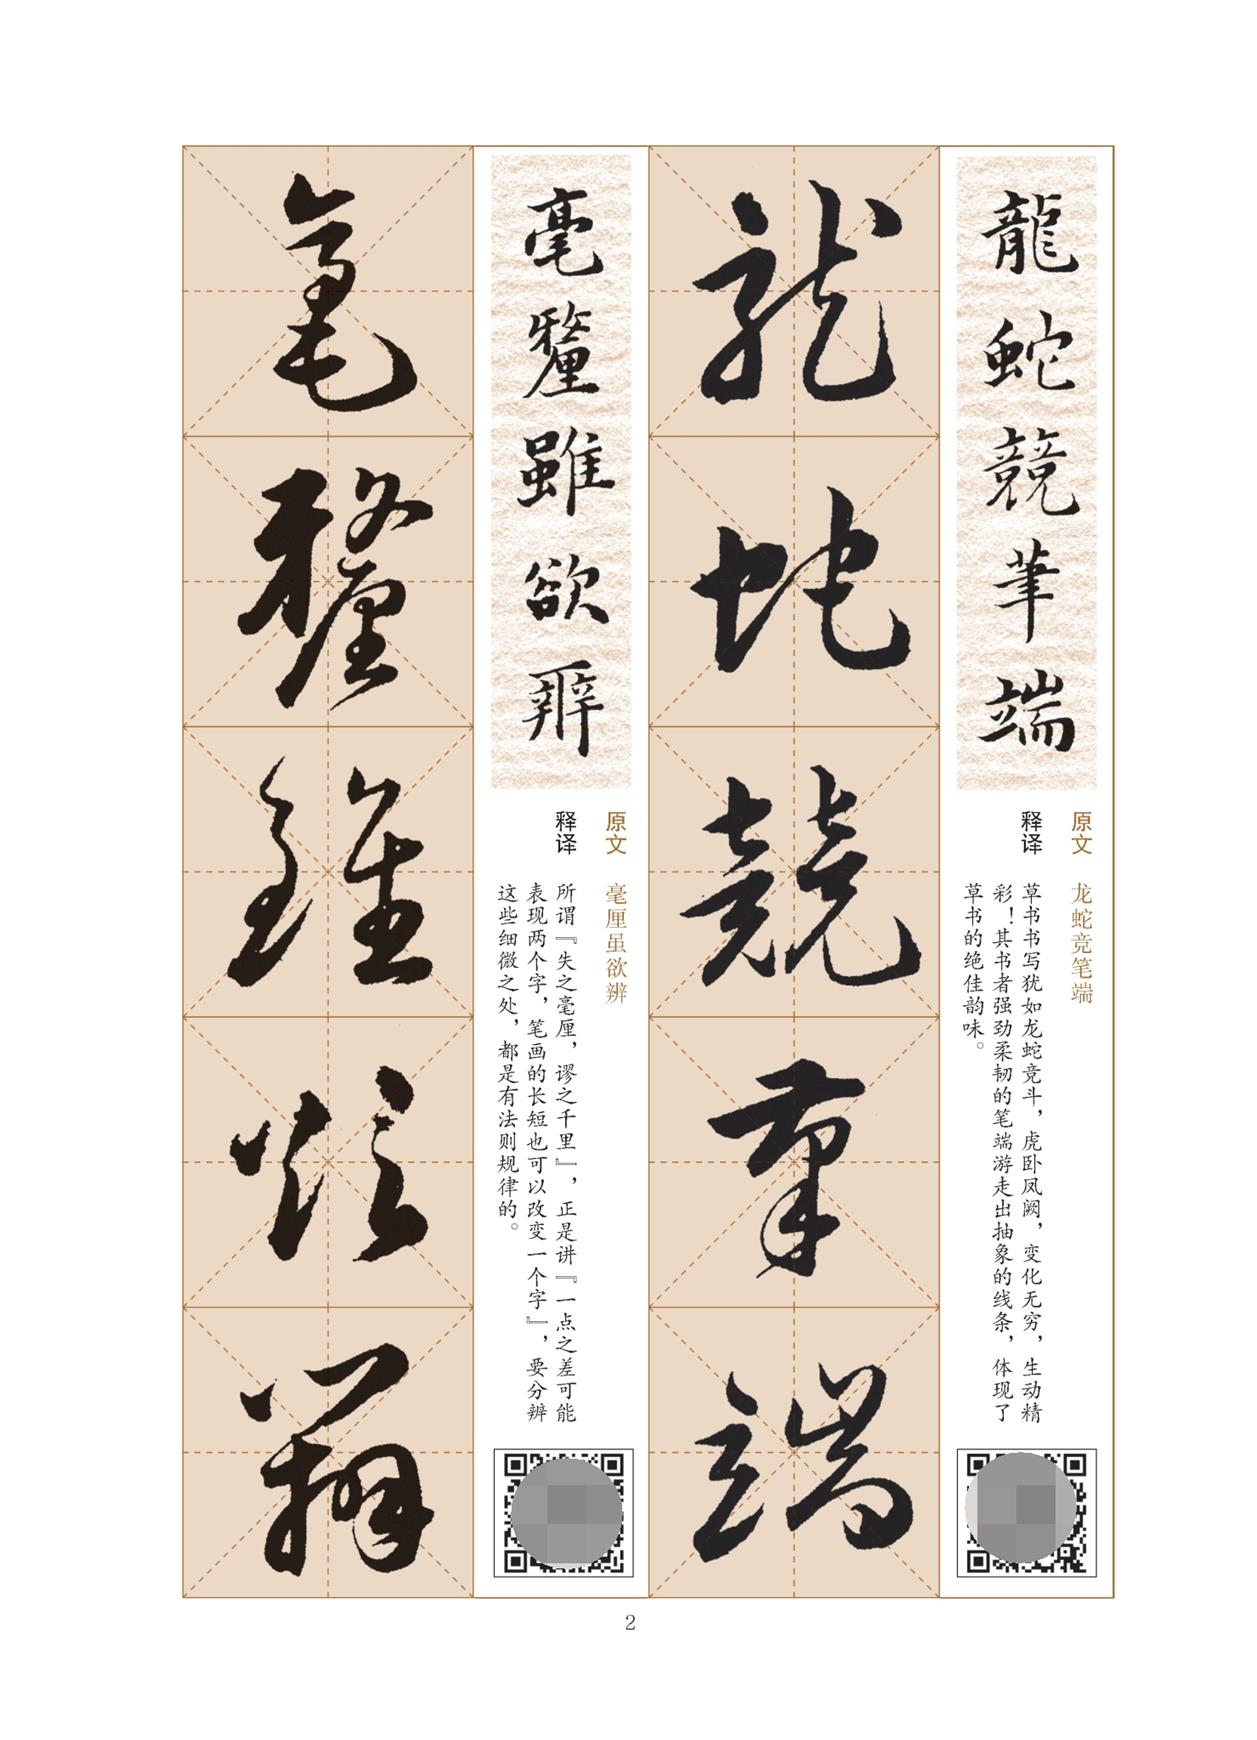 龍蛇競筆端
原文 龙蛇竞笔端
释译 草书书写犹如龙蛇竞斗，虎卧凤阙，变化无穷，生动精
彩！其书者强劲柔韧的笔端游走出抽象的线条，体现了
草书的绝佳韵味。
龍蛇競筆端
毫釐雖欲辨
原文 毫厘虽欲辨
释译 所谓『失之毫厘，谬之千里』，正是讲『一点之差可能
表现两个字，笔画的长短也可以改变一个字』，要分辨
这些细微之处，都是有法则规律的。
毫釐雖欲辨
2